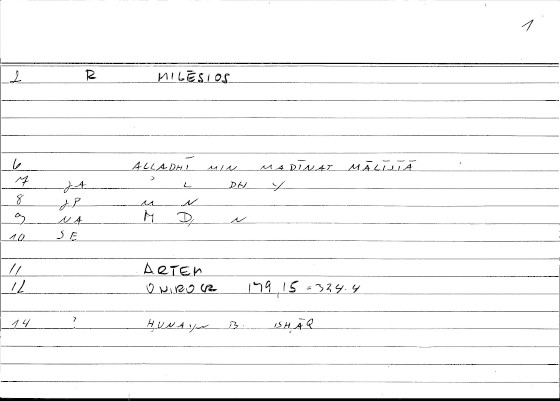 1
2 R MILĒSIOS
6 ALLADHĪ MIN MADĪNAT MĀLĪSĪĀ
7 JA ʾ L DH Y
8 JP M N
9 NA M D N
10 SE
11 ARTEM
12 ONIROCR 179,15 = 324.4
14 ? ḤUNAYN B. ISḤĀQ